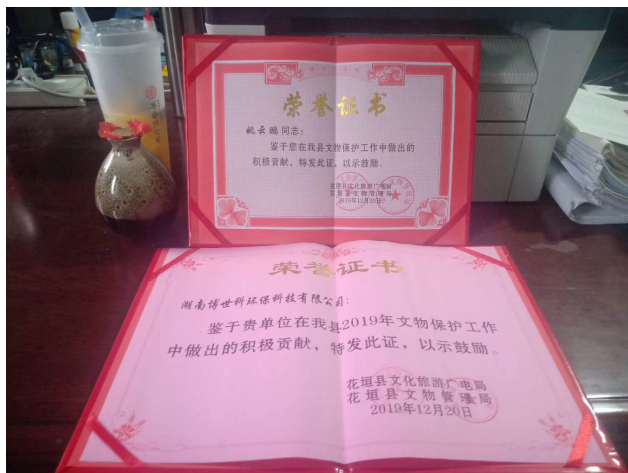 荣誉证书
姚云鹏同志：
鉴于您在我县文物保护工作中做出的
积极贡献，特发此证，以示鼓励。
花垣县文化旅游广电局
花垣县文物管理局
2019年12月20日
荣誉证书
湖南博世科环保科技有限公司：
鉴于贵单位在我县2019年文物保护工作
中做出的积极贡献，特发此证，以示鼓励。
花垣县文化旅游广电局
花垣县文物管理局
2019年12月20日